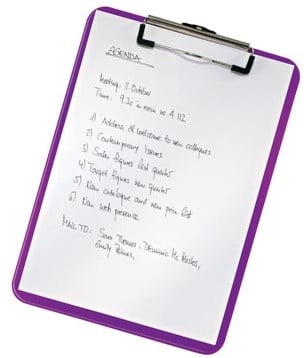 AGENDA
Meeting: 11 October
Time: 9.30 in room no A 112
1) Address of welcome to new collegues
2) Contemporary Issues
3) Sales figures last quarter
4) Target figures new quarter
5) New catalogue and new price list
6) New web presence
MAIL TO: Sara Thomas, Dominic Mc
Emily